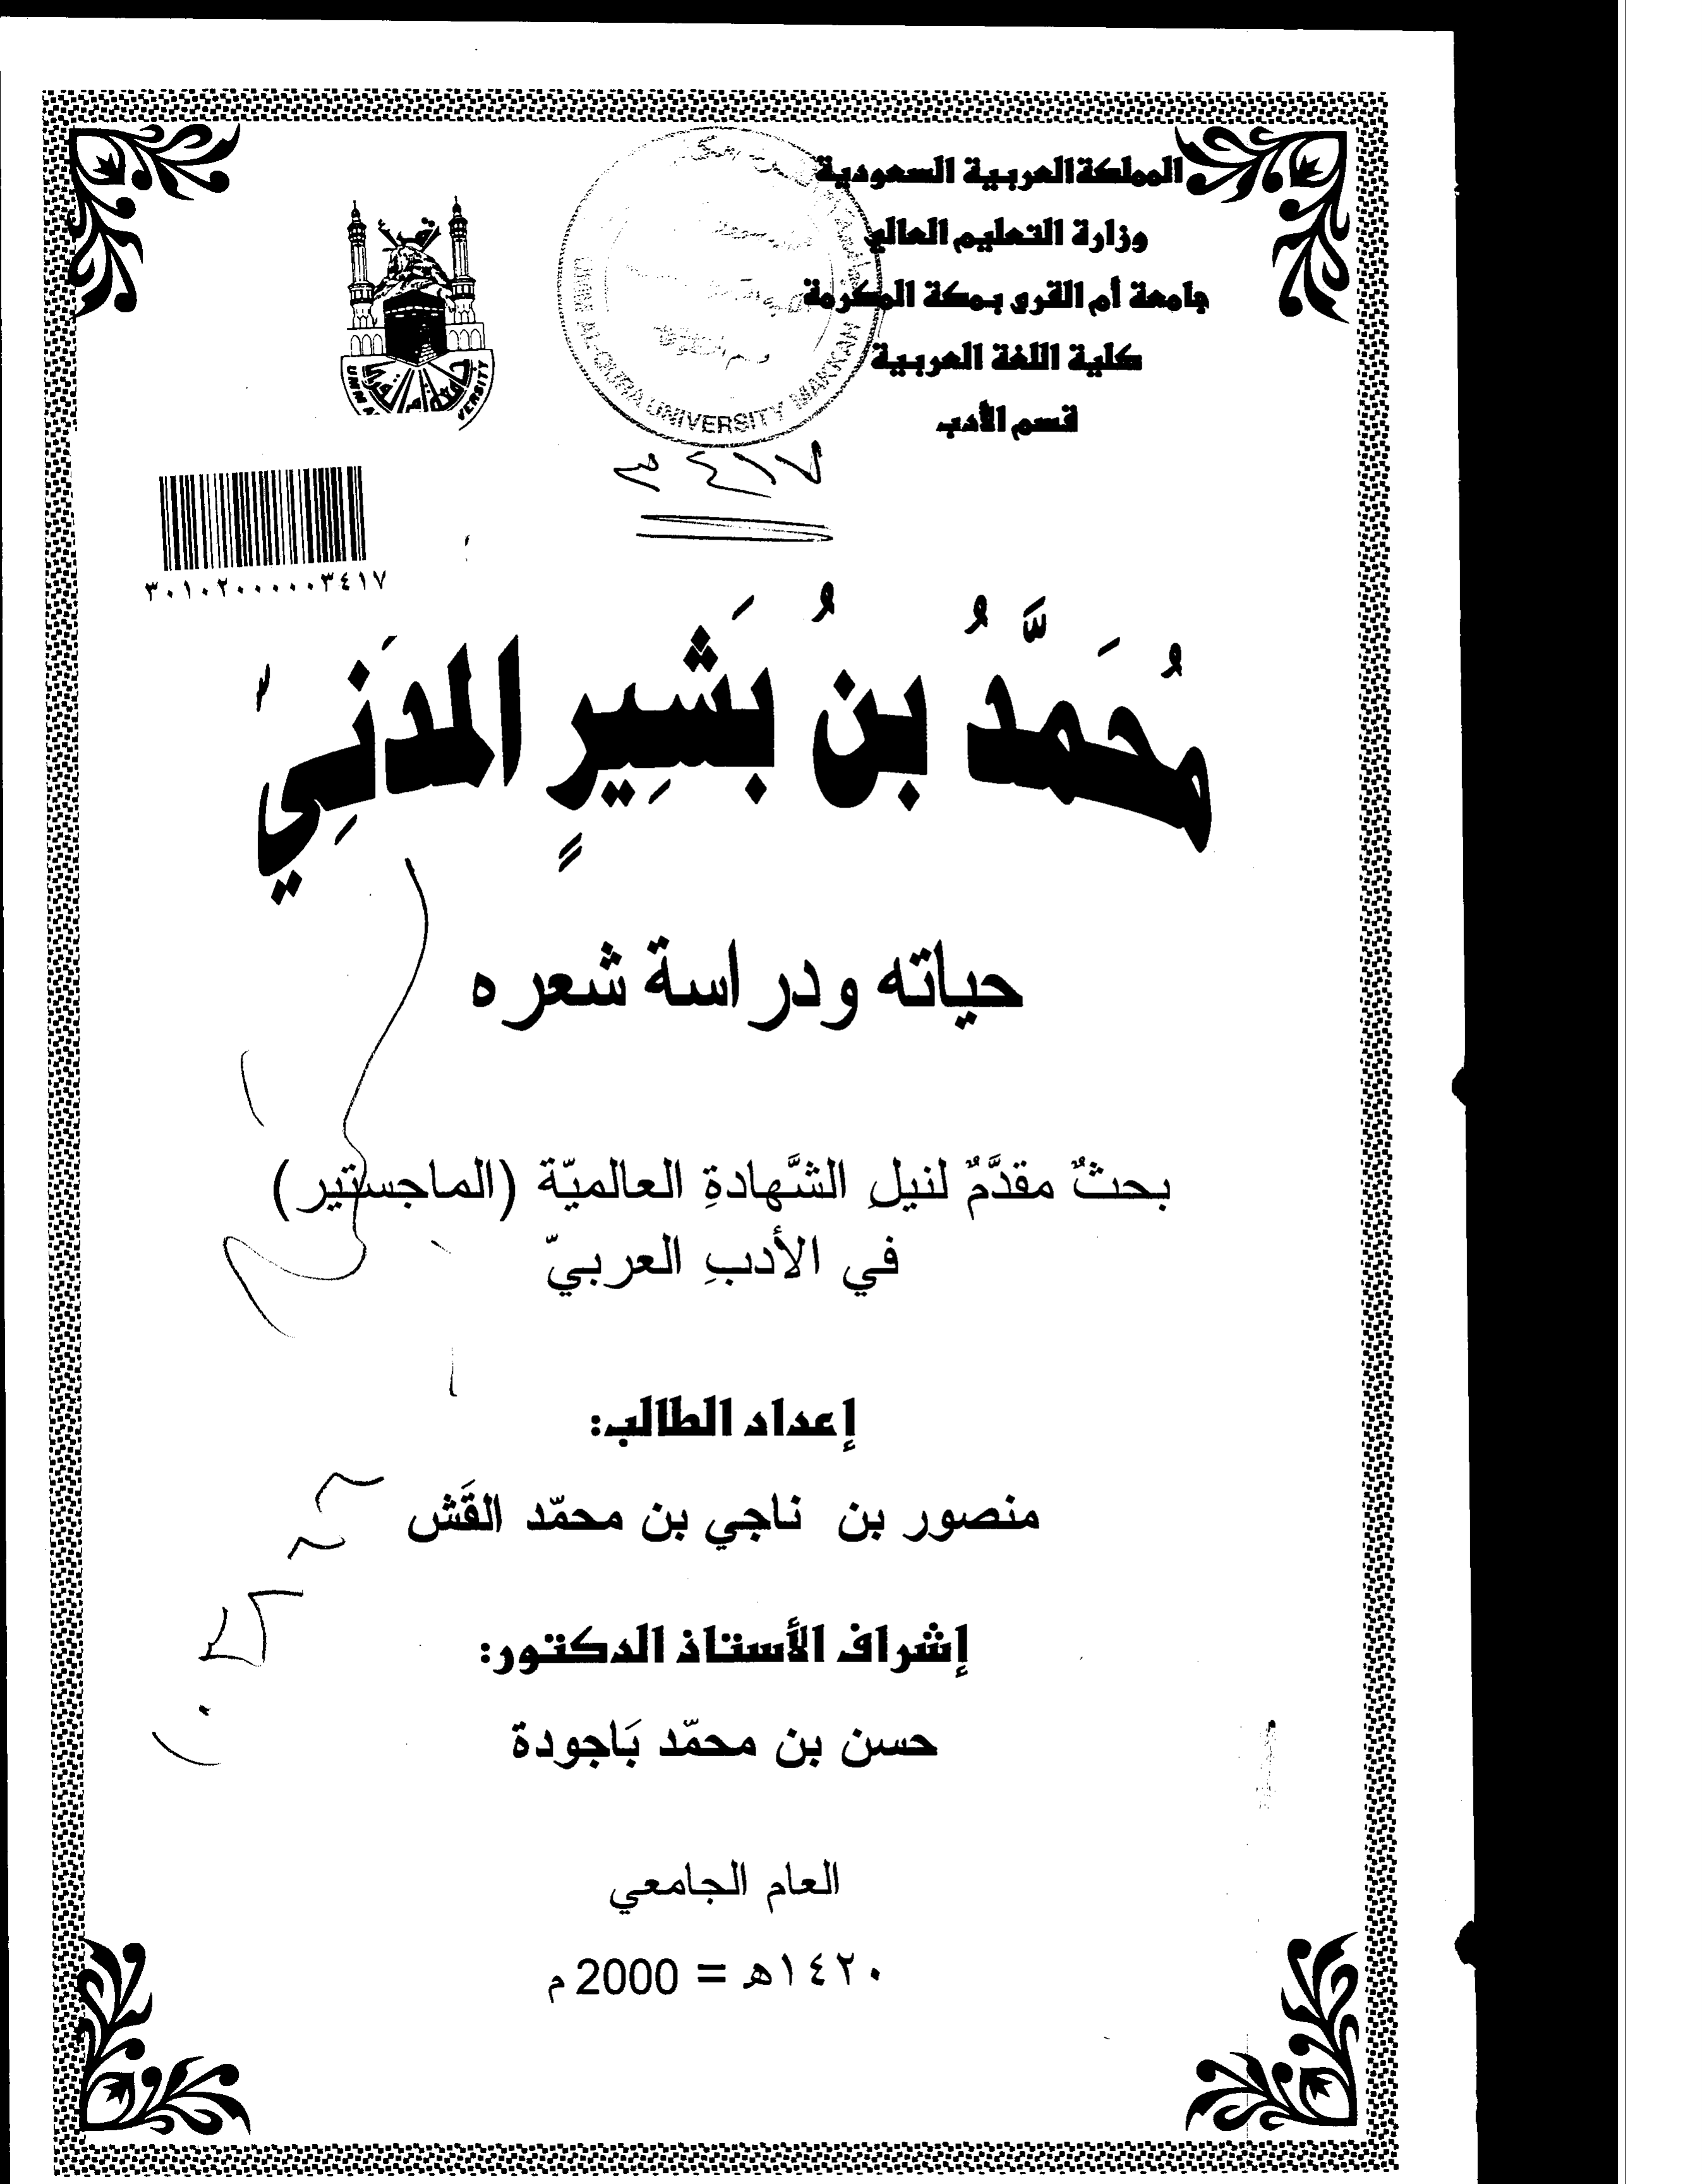 المملكة العربية السعودية
وزارة التعليم العالي
جامعة أم القرى بمكة المكرمة
كلية اللغة العربية
قسم الأدب
UMM AL-QURA UNIVERSITY MAKKAH
٣٤١٧
٣٠١٠٢٠٠٠٠٠٣٤١٧
مُحَمَّدُ بنُ بَشِيرٍ المدَنِيّ
حياته ودراسة شعره
بحثٌ مقدَّمٌ لنيلِ الشَّهادةِ العالميّة (الماجستير)
في الأدبِ العربيّ
إعداد الطالب:
منصور بن ناجي بن محمّد القَش
إشراف الأستاذ الدكتور:
حسن بن محمّد بَاجودة
العام الجامعي
١٤٢٠هـ = 2000 م